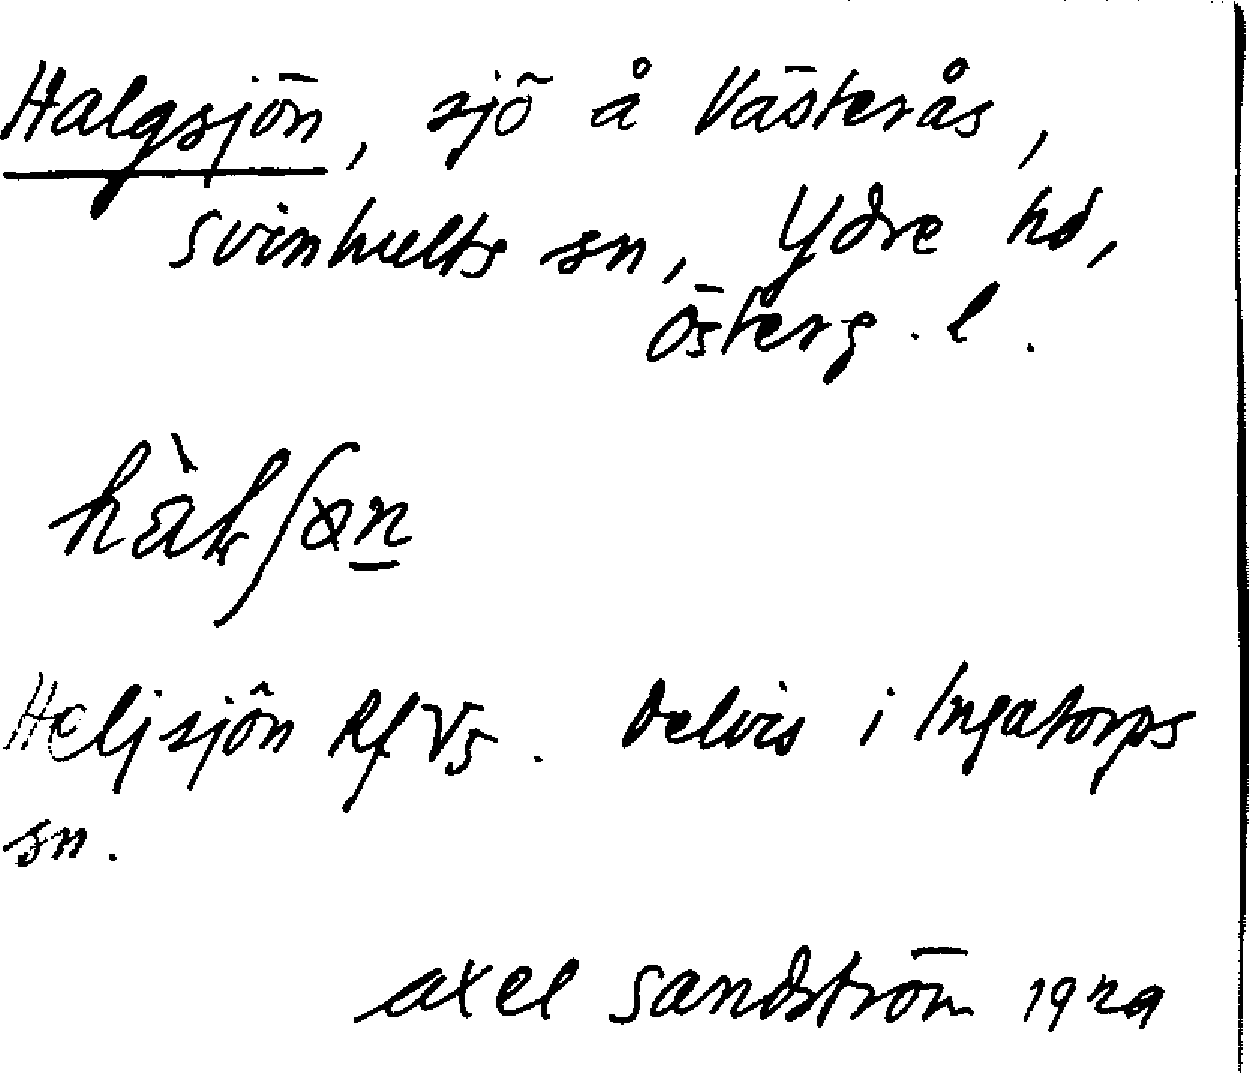 Halgsjön, sjö å Västerås,
Svinhults sn, Ydre hd,
Österg. l.
Heljsjön Rf V5. Delvis i Ingatorps
sn.
Axel Sandström 1929